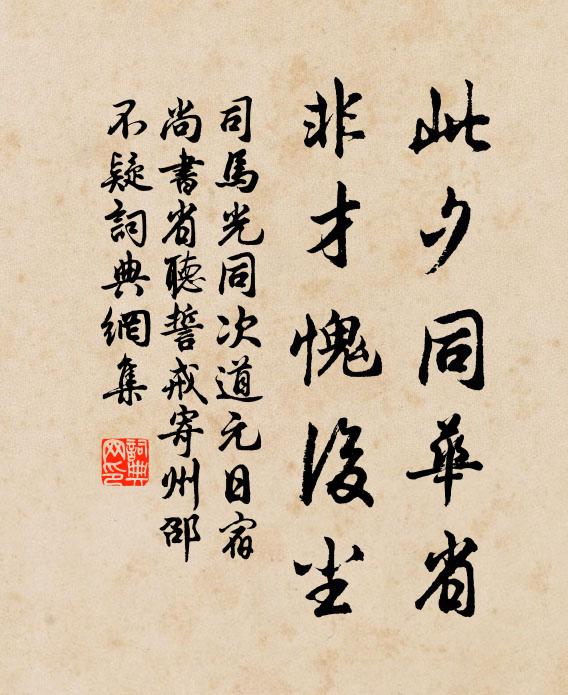 此夕同華省
非才愧後坐
司馬光同次道元日宿
尚書省聽誓戒寄州邵
不疑詞典網集
詞典
网印